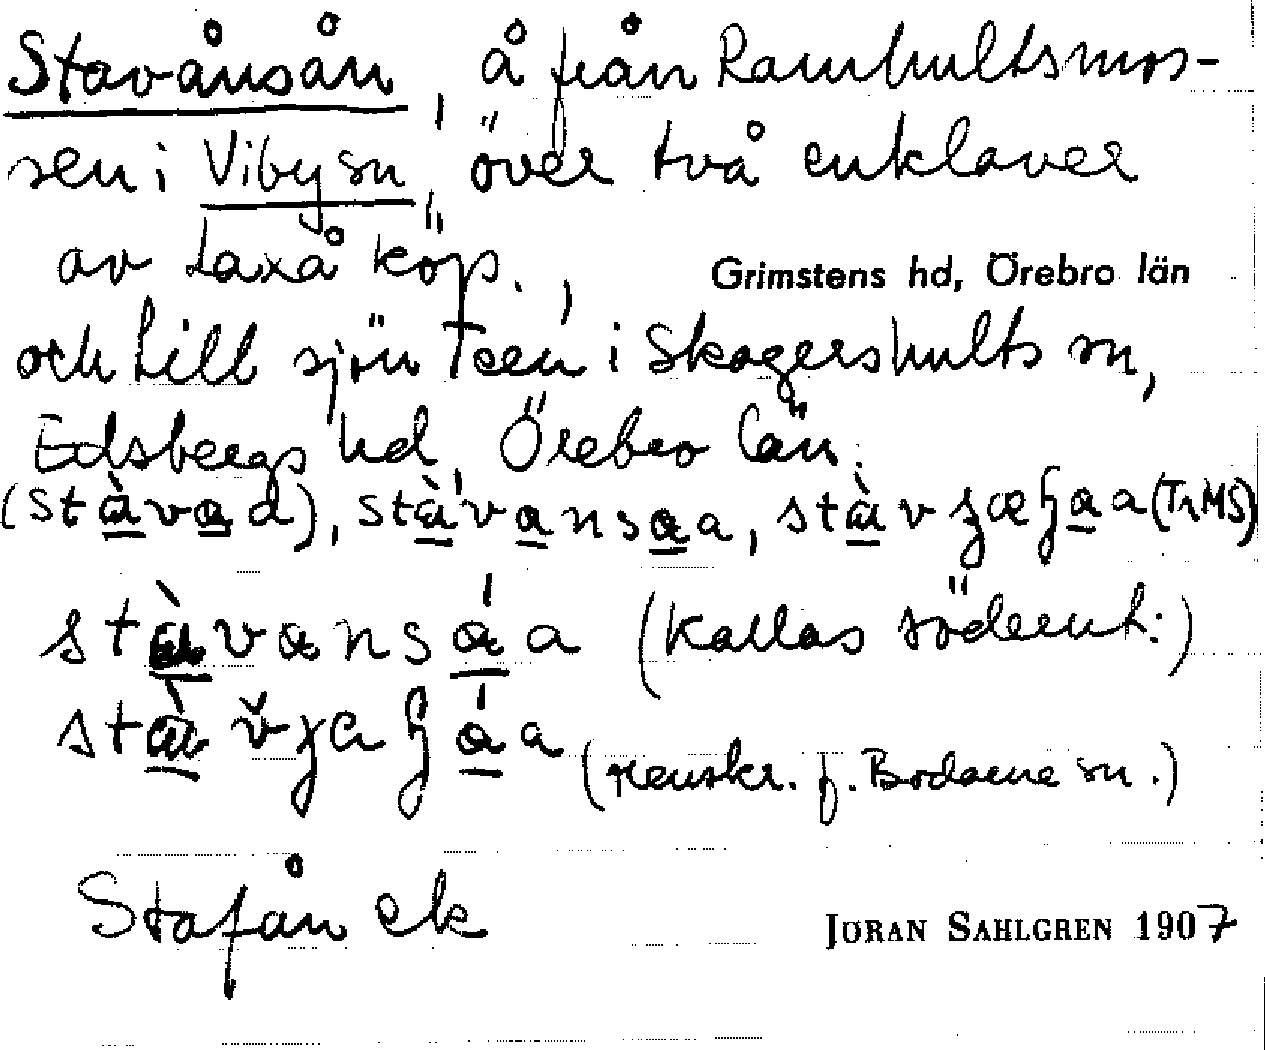 Stavånsån, å från Ramhultsmos-
sen i Viby sn, över två enklaver
av Laxå köp.,
Grimstens hd, Örebro län
och till sjön Teen i Skagershults sn,
Edsbergs hd, Örebro län.
(stàvad), stàvansaa, stàv (TrMS)
stàvansáa (kallas söderut:)
(renskr. f. Bodarne sn.)
Stafån ek
JÖRAN SAHLGREN 1907